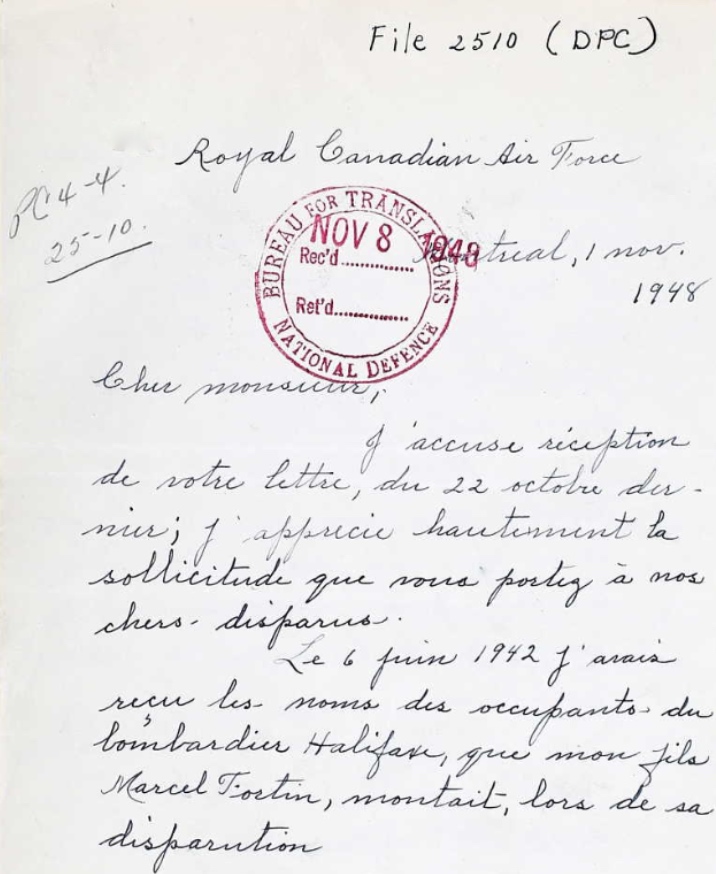 File 2510 (DPC)
Royal Canadian Air Force
PC 4-4.
25-10.
BUREAU FOR TRANSLATIONS
NOV 8 1948
Rec'd..............
Ret'd..............
NATIONAL DEFENCE
Montreal, 1 nov.
1948
Cher monsieur,
J'accuse réception
de votre lettre, du 22 octobre der-
nier; j'apprecie hautement la
sollicitude que vous portez à nos
chers-disparus.
Le 6 juin 1942 j'avais
reçu les noms des occupants du
bombardier Halifaxe, que mon fils
Marcel Fortin, montait, lors de sa
disparution